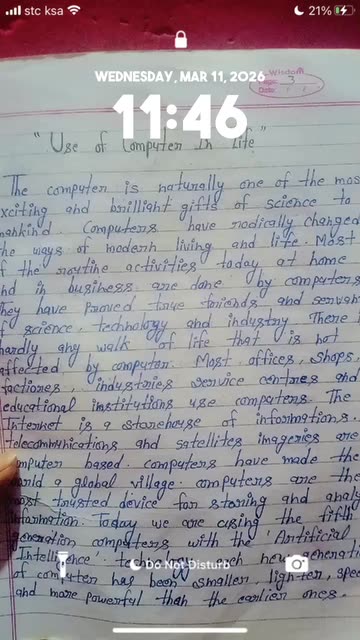 stc ksa 21%
Wisdom
3
Date:
WEDNESDAY, MAR 11, 2026
11:46
"Use of Computer In Life"
The computer is naturally one of the mos
xciting and brilliant gifts of science to
mankind. Computers have rodically changed
the ways of modern living and life. Most
f the routine activities today at home
nd in business are done by computers
They have proved true friends and servan
f science, technology and industry. There i
hardly any walk of life that is not
affected by computer. Most offices, shops,
factiories, industries service centres and
educational institutions use computers. The
Internet is a storehouse of informations.
Telecommunications and satellites imageries are
omputer based. computers have made the
world a global village. computers are the
most trusted device for storing and analy
information. Today we are using the fifth
generation computers with the 'Artificial
Intelligence' each new generati
of computer has been smaller, lighter, spee
and more powerful than the earlier ones.
Do Not Disturb